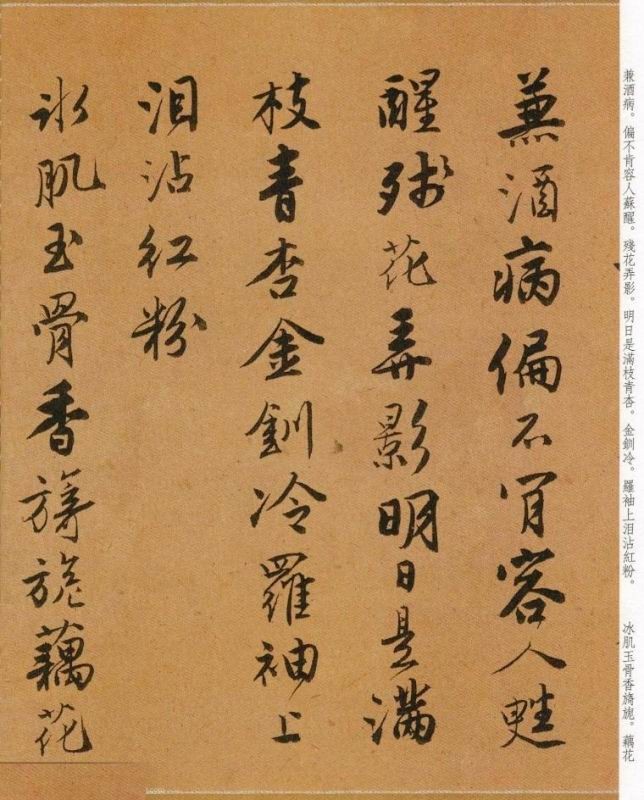 兼酒病。偏不肯容人蘇醒。殘花弄影。明日是滿枝青杏。金釧冷。羅袖上泪沾紅粉。　冰肌玉骨香旖旎。藕花
兼酒病偏不肯容人甦
醒殘花弄影明日是滿
枝青杏金釧冷羅袖上
泪沾紅粉
冰肌玉骨香旖旎藕花